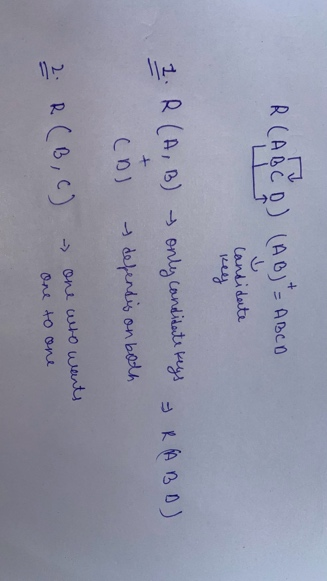 R (A B C D) (AB)⁺ = ABCD
↓
candidate
key
1. R (A, B) → only candidate keys ⇒ R (A B D)
+
(D) → depends on both
2. R (B, C) → one who wants
one to one